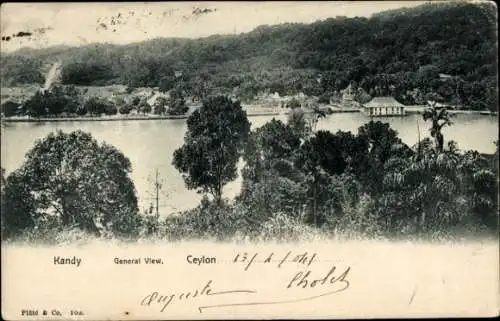 Kandy General View. Ceylon 13/4 04.
Auguste Cholet
Plâté & Co., 102.